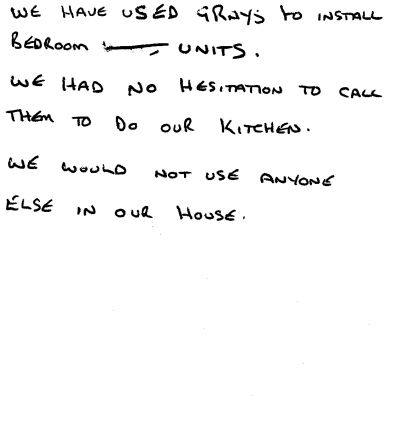 WE HAVE USED GRAYS to INSTALL
BEDROOM UNITS.
WE HAD NO HESITATION TO CALL
THEM TO DO OUR KITCHEN.
WE WOULD NOT USE ANYONE
ELSE IN OUR HOUSE.